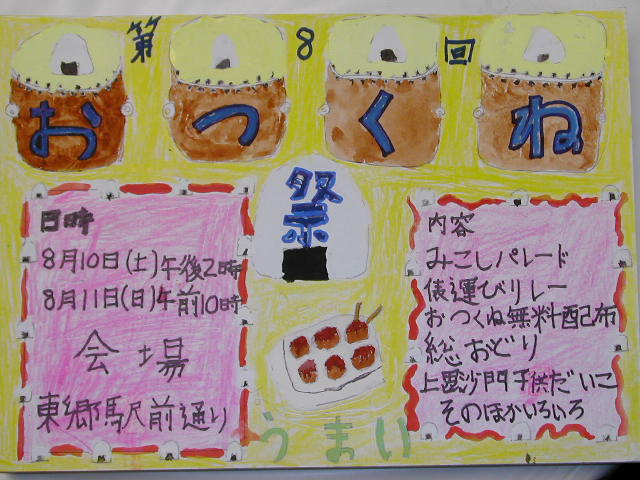 第8回
おつくね
祭
日時
8月10日(土)午後2時
8月11日(日)午前10時
会場
東郷駅前通り
内容
みこしパレード
俵運びリレー
おつくね無料配布
総おどり
上毘沙門子供だいこ
そのほかいろいろ
うまい